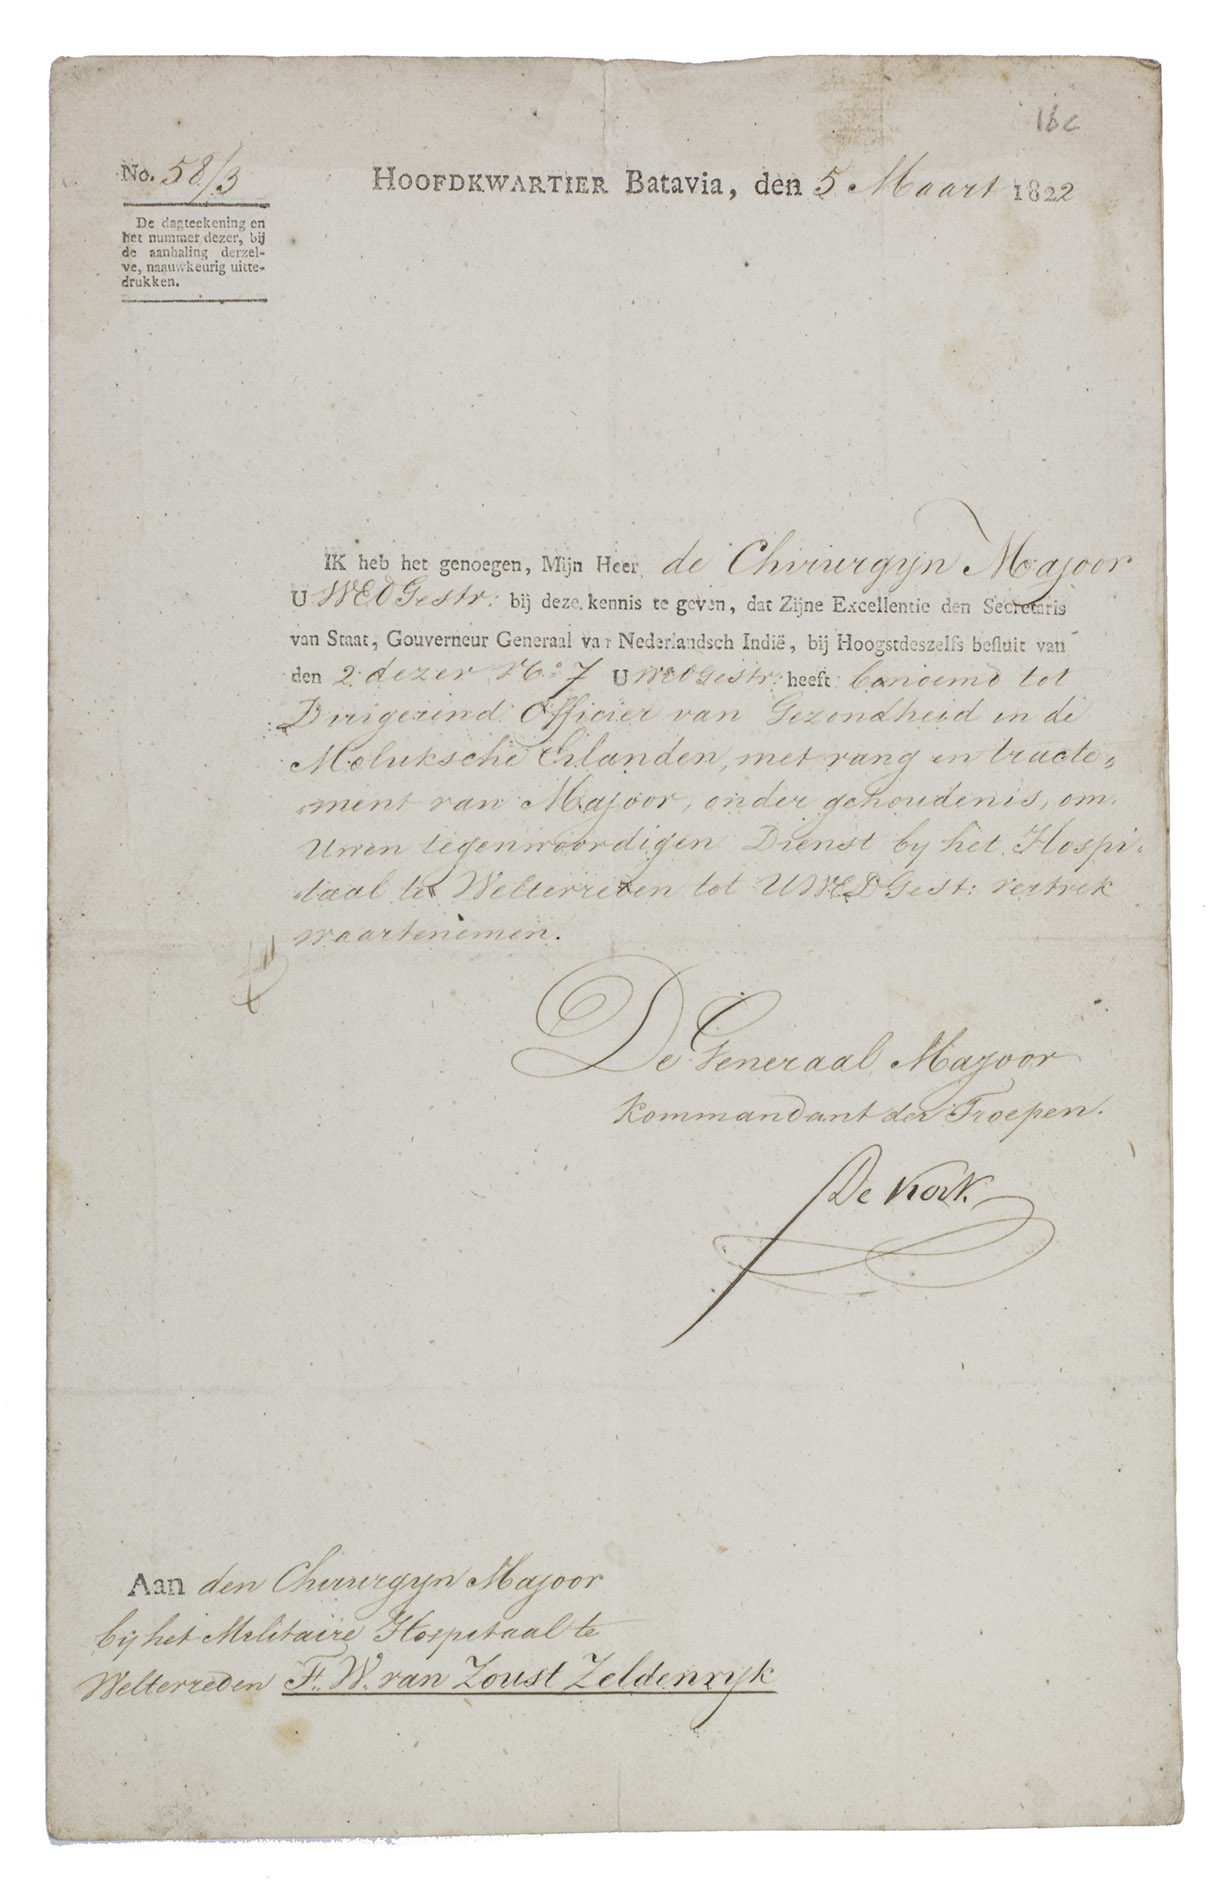 18c
No. 58/3
HOOFDKWARTIER Batavia, den 5 Maart 1822
De dagteekening en
het nummer dezer, bij
de aanhaling derzel-
ve, naauwkeurig uitte-
drukken.
IK heb het genoegen, Mijn Heer, de Chirurgyn Majoor
U WEDGestr: bij deze kennis te geven, dat Zijne Excellentie den Secretaris
van Staat, Gouverneur Generaal van Nederlandsch Indië, bij Hoogstdeszelfs besluit van
den 2 dezer No. 7 U WEDGestr: heeft benoemd tot
Dirigerend Officier van Gezondheid in de
Moluksche Eilanden, met rang en tracte„
„ment van Majoor, onder gehoudenis, om
Uwen tegenwoordigen Dienst by het Hospi„
„taal te Welterreden tot UWEDGest: vertrek
waartenemen.
De Generaal Majoor
Kommandant der Troepen.
De Kock.
Aan den Chirurgyn Majoor
bij het Militaire Hospitaal te
Welterreden F. W. van Zoust Zeldenryk